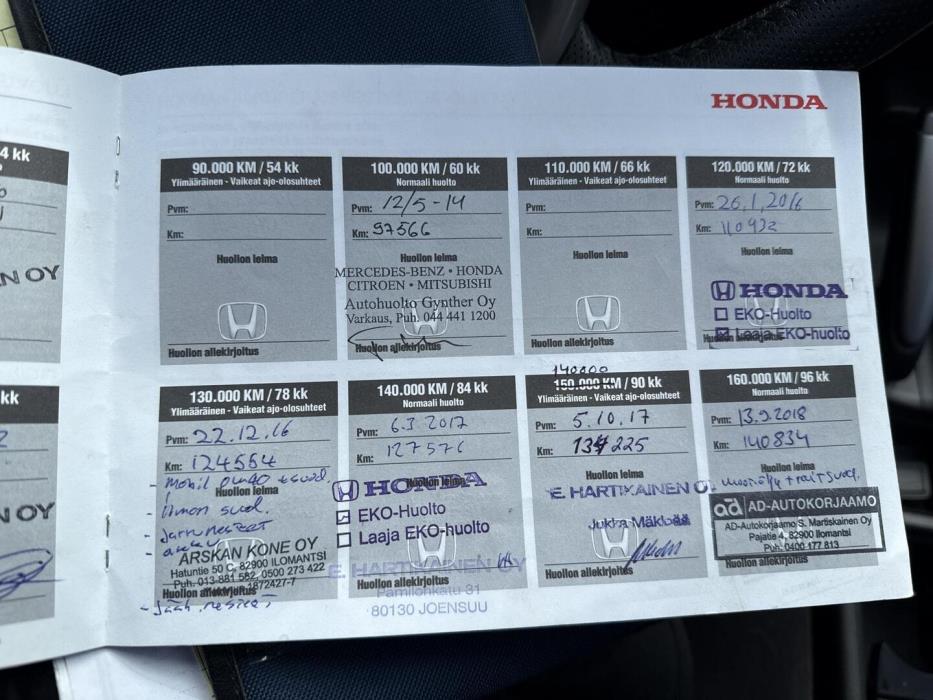 HONDA
4 kk
N OY
kk
N OY
90.000 KM / 54 kk
Ylimääräinen - Vaikeat ajo-olosuhteet
Pvm:
Km:
Huollon leima
Huollon allekirjoitus
100.000 KM / 60 kk
Normaali huolto
Pvm: 12/5-14
Km: 97566
Huollon leima
MERCEDES-BENZ • HONDA
CITROEN • MITSUBISHI
Autohuolto Gynther Oy
Varkaus, Puh. 044 441 1200
Huollon allekirjoitus
110.000 KM / 66 kk
Ylimääräinen - Vaikeat ajo-olosuhteet
Pvm:
Km:
Huollon leima
Huollon allekirjoitus
120.000 KM / 72 kk
Normaali huolto
Pvm: 26.1.2016
Km: 110932
Huollon leima
HONDA
EKO-Huolto
Laaja EKO-huolto
130.000 KM / 78 kk
Ylimääräinen - Vaikeat ajo-olosuhteet
Pvm: 22.12.16
Km: 124554
- Mobil
Huollon leima
- ilman suod.
- Jarrunesteet
ARSKAN KONE OY
Hatuntie 50 C, 82900 ILOMANTSI
Puh. 013-881 582, 0500 273 422
1872427-7
Huollon allekirjoitus
- Jääh. nesteet
140.000 KM / 84 kk
Normaali huolto
Pvm: 6.3.2017
Km: 127576
Huollon leima
HONDA
EKO-Huolto
Laaja EKO-huolto
E. HARTIKAINEN OY
Huollon allekirjoitus
Pamilonkatu 31
80130 JOENSUU
140000
150.000 KM / 90 kk
Ylimääräinen - Vaikeat ajo-olosuhteet
Pvm: 5.10.17
Km: 134225
Huollon leima
E. HARTIKAINEN O
Jukka Mäkl
Huollon allekirjoitus
160.000 KM / 96 kk
Normaali huolto
Pvm: 13.9.2018
Km: 140834
Huollon leima
ad AD-AUTOKORJAAMO
AD-Autokorjaamo S. Martiskainen Oy
Pajatie 4, 82900 Ilomantsi
Puh. 0400 177 813
Huollon allekirjoitus